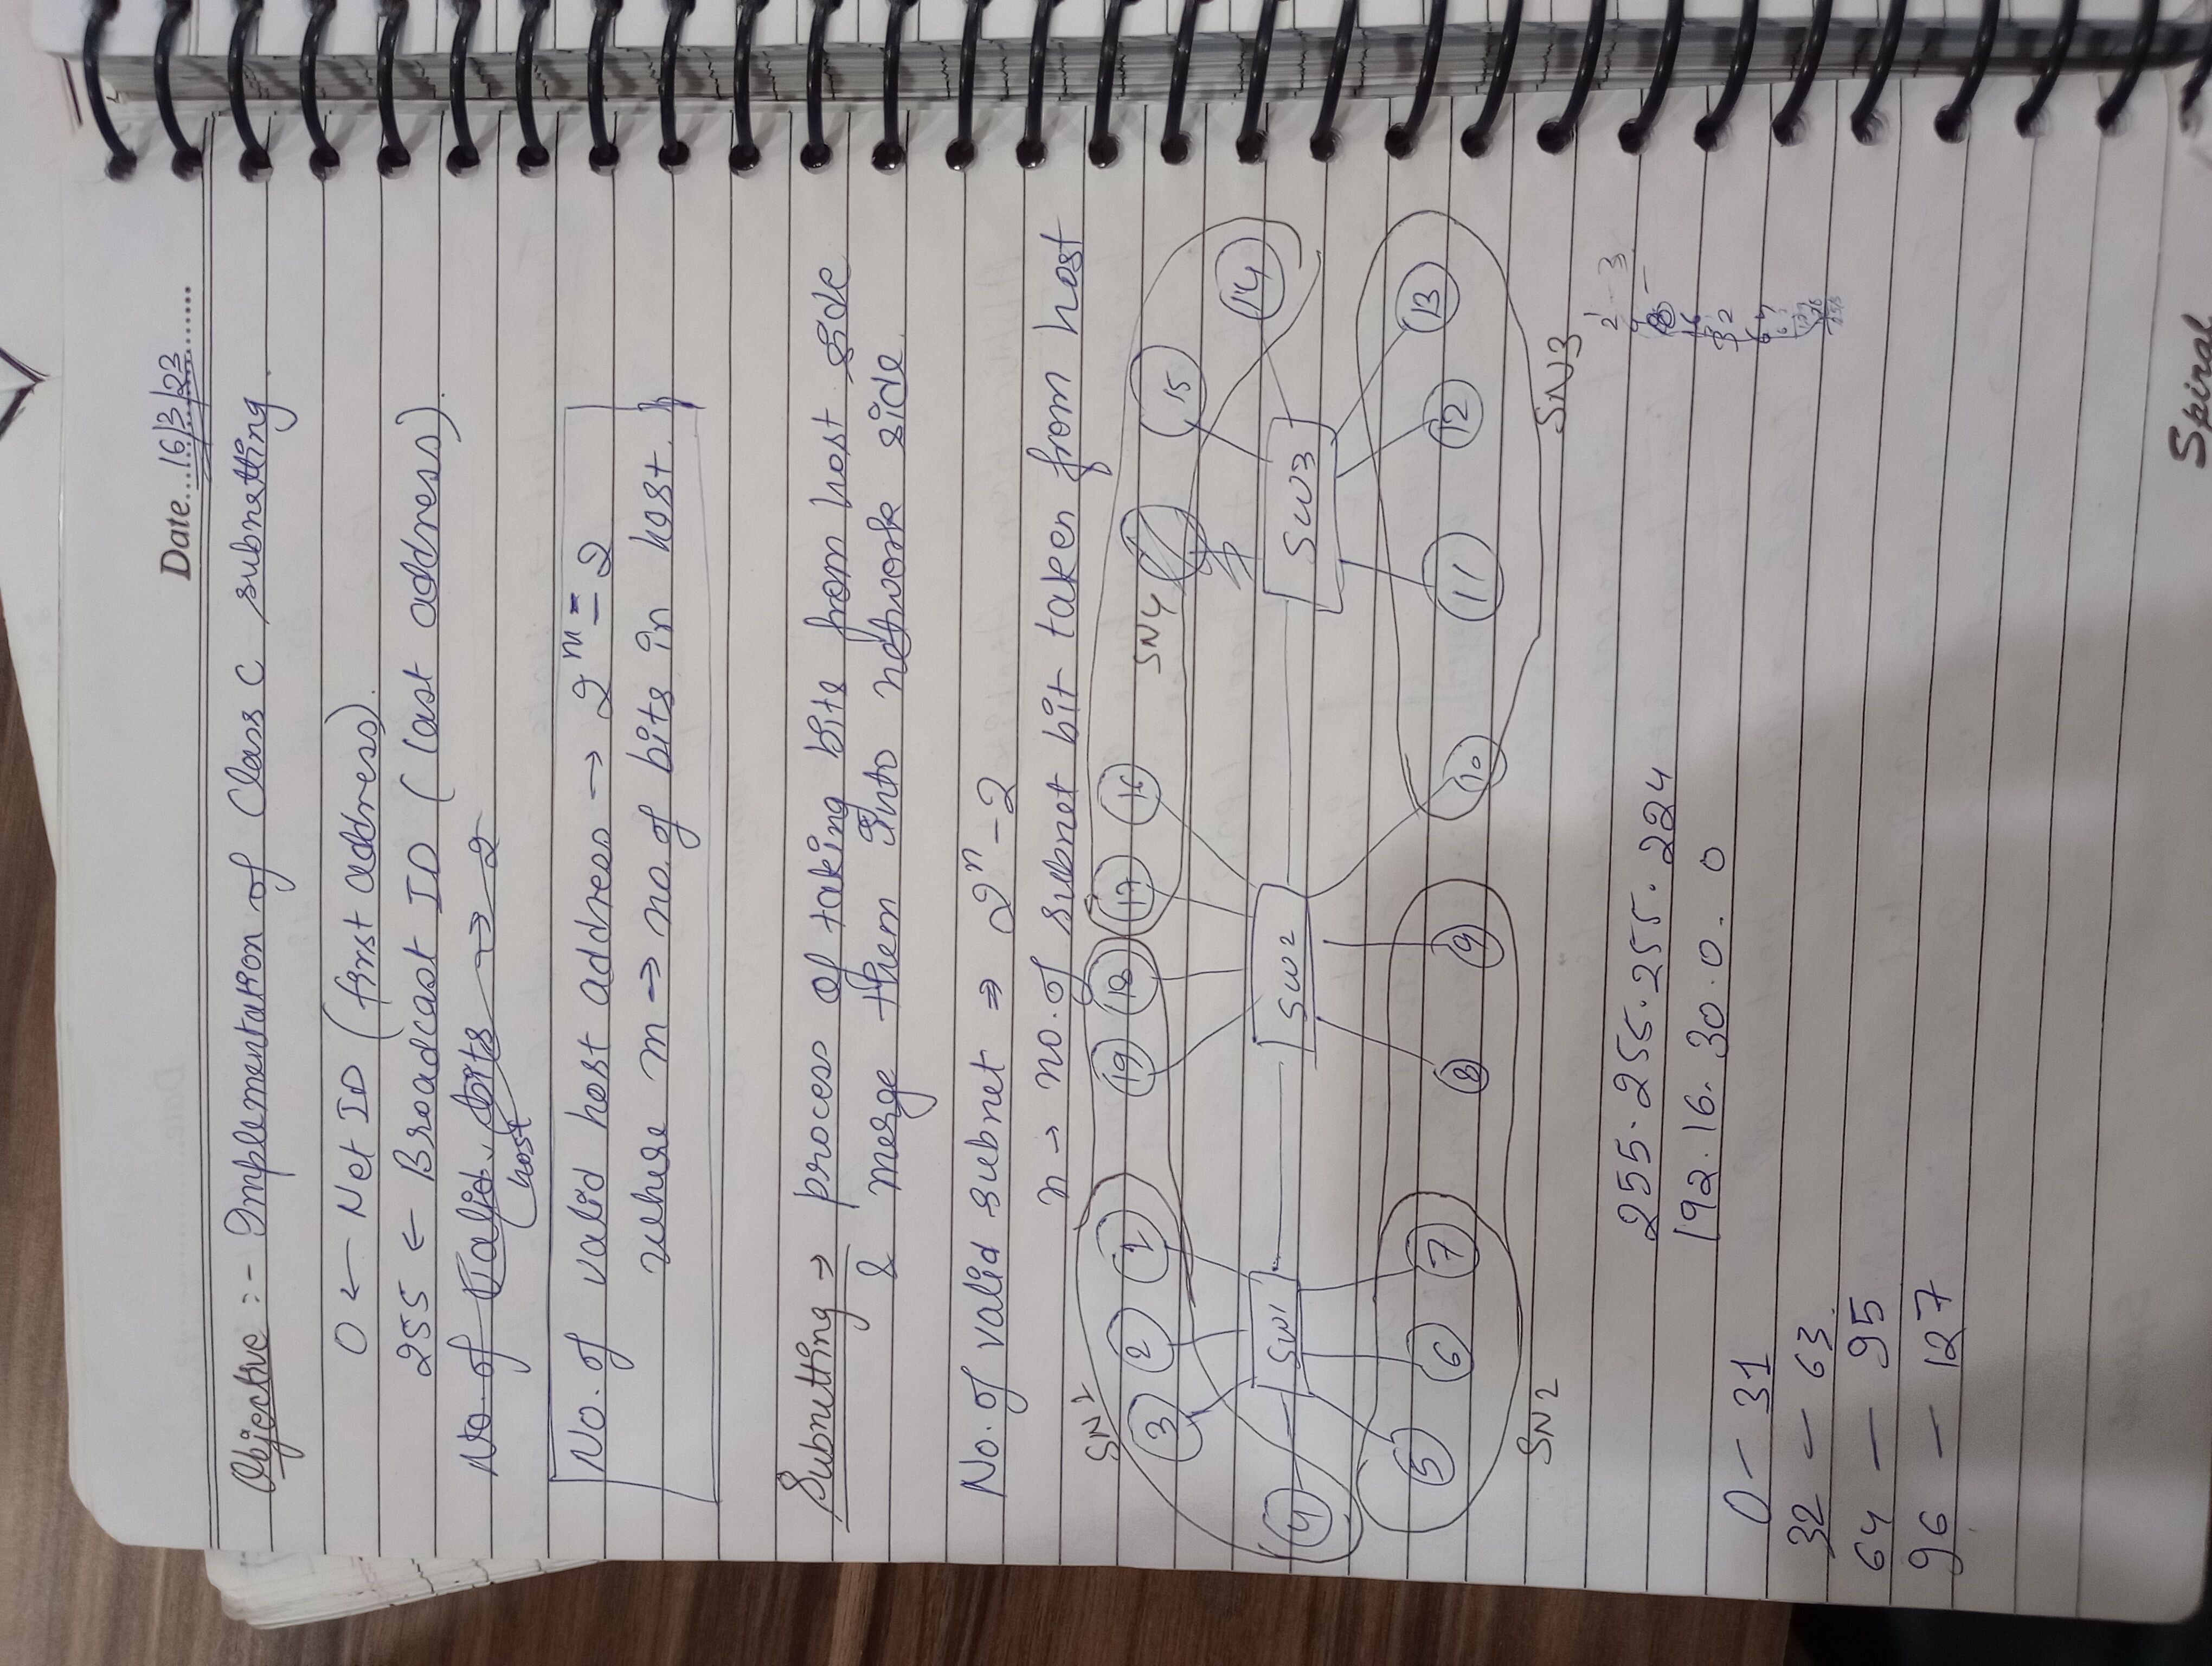 Date...16/3/23.......
Objective :- Implementation of Class C subnetting
0 ← Net ID (first address).
255 ← Broadcast ID (last address).
No. of valid bits → 2
host
No. of valid host address → 2^m - 2
where m → no. of bits in host.
Subnetting → process of taking bits from host side
& merge them into network side.
No. of valid subnet ⇒ 2^n - 2
n → no. of subnet bit taken from host
SN1
SN4
3 2 1 19 18 17 16 15 14
4 SW1 SW2 SW3
5 6 7 8 9 10 11 12 13
SN2
SN3
255.255.255.224
192.16.30.0.0
0 - 31
32 - 63.
64 - 95
96 - 127
16
32
64
Spiral